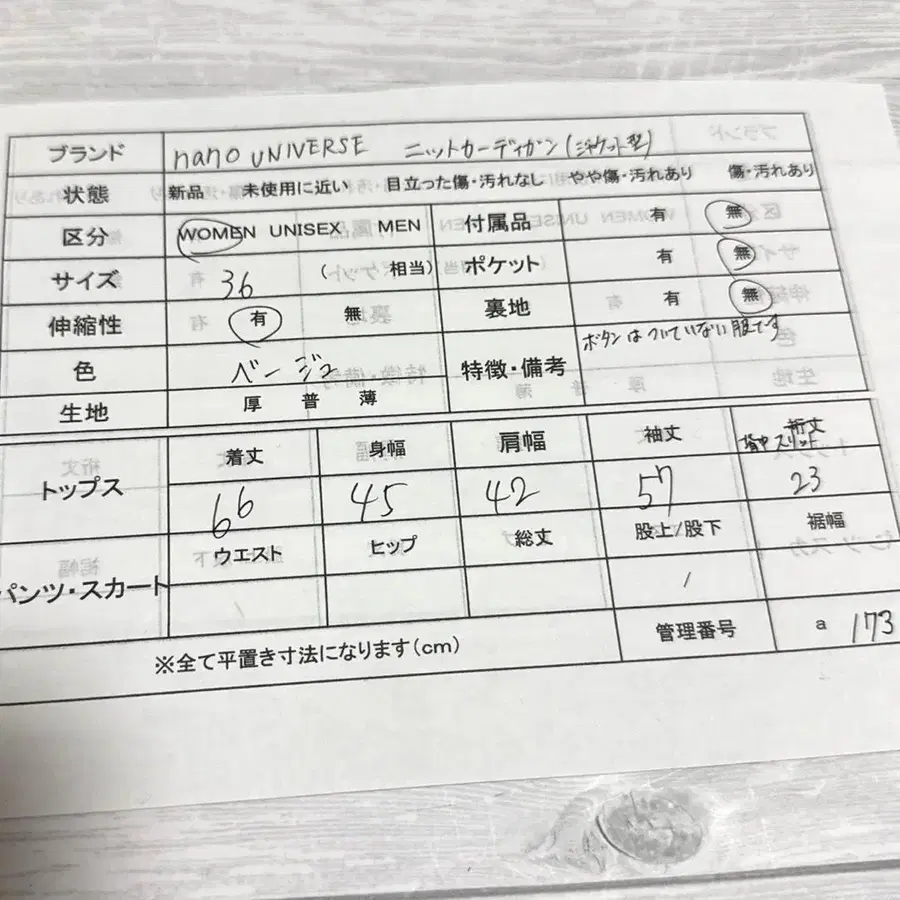 ブランド nano UNIVERSE ニットカーディガン(ジャケット型)
状態 新品 未使用に近い 目立った傷・汚れなし やや傷・汚れあり 傷・汚れあり
区分 WOMEN UNISEX MEN 付属品 有 無
サイズ 36 (相当) ポケット 有 無
伸縮性 有 無 裏地 有 無
色 ベージュ 特徴・備考 ボタンはついていない服です
生地 厚 普 薄
トップス 着丈 身幅 肩幅 袖丈 裄丈 背中スリット
66 45 42 57 23
パンツ・スカート ウエスト ヒップ 総丈 股上/股下 裾幅
/
※全て平置き寸法になります(cm) 管理番号 a 173